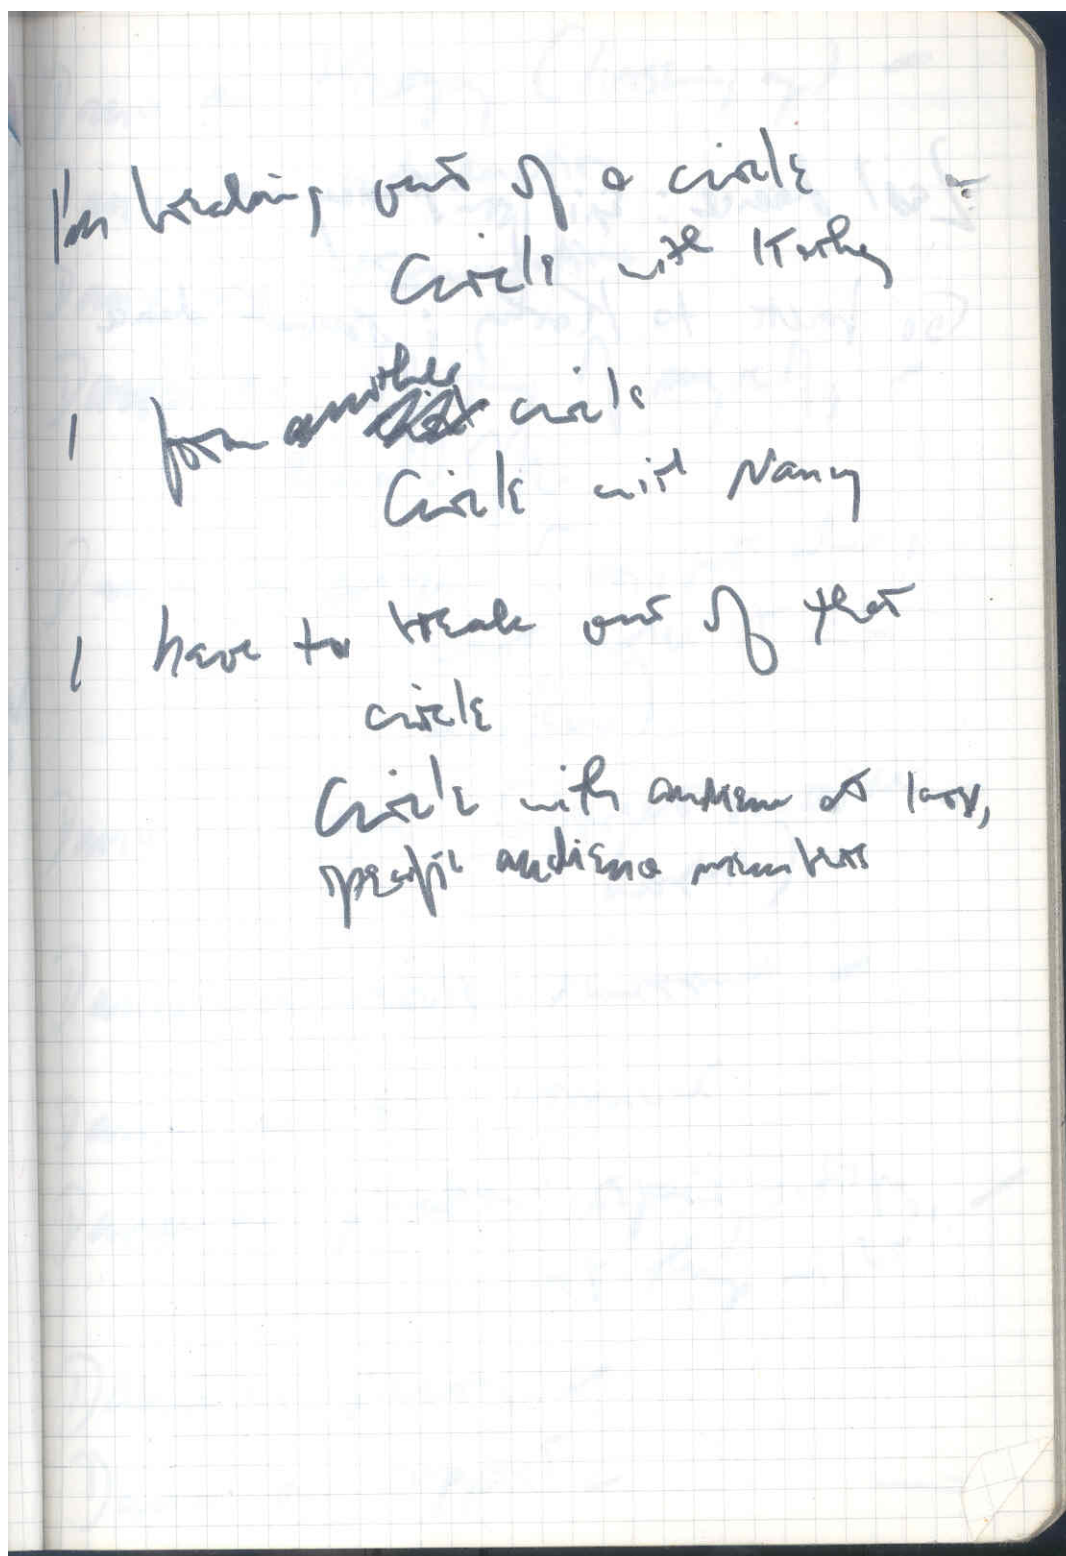 I'm breaking out of a circle
Circle with Kathy
I form another circle
Circle with Nancy
I have to break out of that
circle
Circle with audience at large,
specific audience members